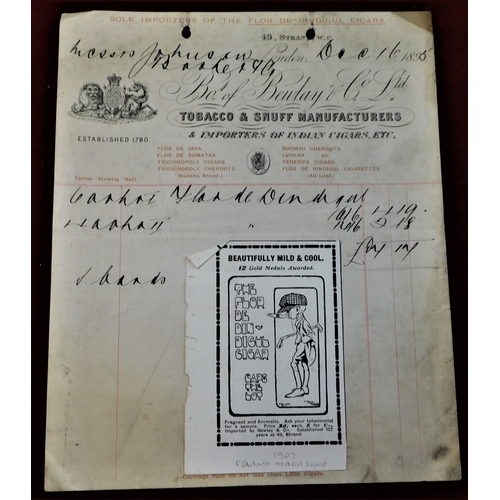 SOLE IMPORTERS OF THE FLOR DE DINDIGUL CIGARS.
49, STRAND, W.C.
Messrs Johnson London, Dec 16 1895
Bot. of Bewlay & Co. Ltd
TOBACCO & SNUFF MANUFACTURERS
& IMPORTERS OF INDIAN CIGARS, ETC.
ESTABLISHED 1780.
FLOR DE JAVA
FLOR DE SUMATRA
TRICHINOPOLY CIGARS
TRICHINOPOLY CHEROOTS
(Buddha Brand)
BURMAH CHEROOTS
LUNKAH do.
TENERIFE CIGARS
FLOR DE DINDIGUL CIGARETTES
(All Leaf)
Terms Strictly Nett
Flor de Dindigul
"
BEAUTIFULLY MILD & COOL.
12 Gold Medals Awarded.
THE
FLOR
DE
DIN-
DIGUL
CIGAR
CAPS
THE
LOT
Fragrant and Aromatic. Ask your tobacconist
for a sample. Price 3d. each, 5 for 1/-.
Imported by Bewlay & Co. Established 127
years at 49, Strand.
1907
STRAND MAGAZINE
Carriage Paid on not less than 1,000 Cigars